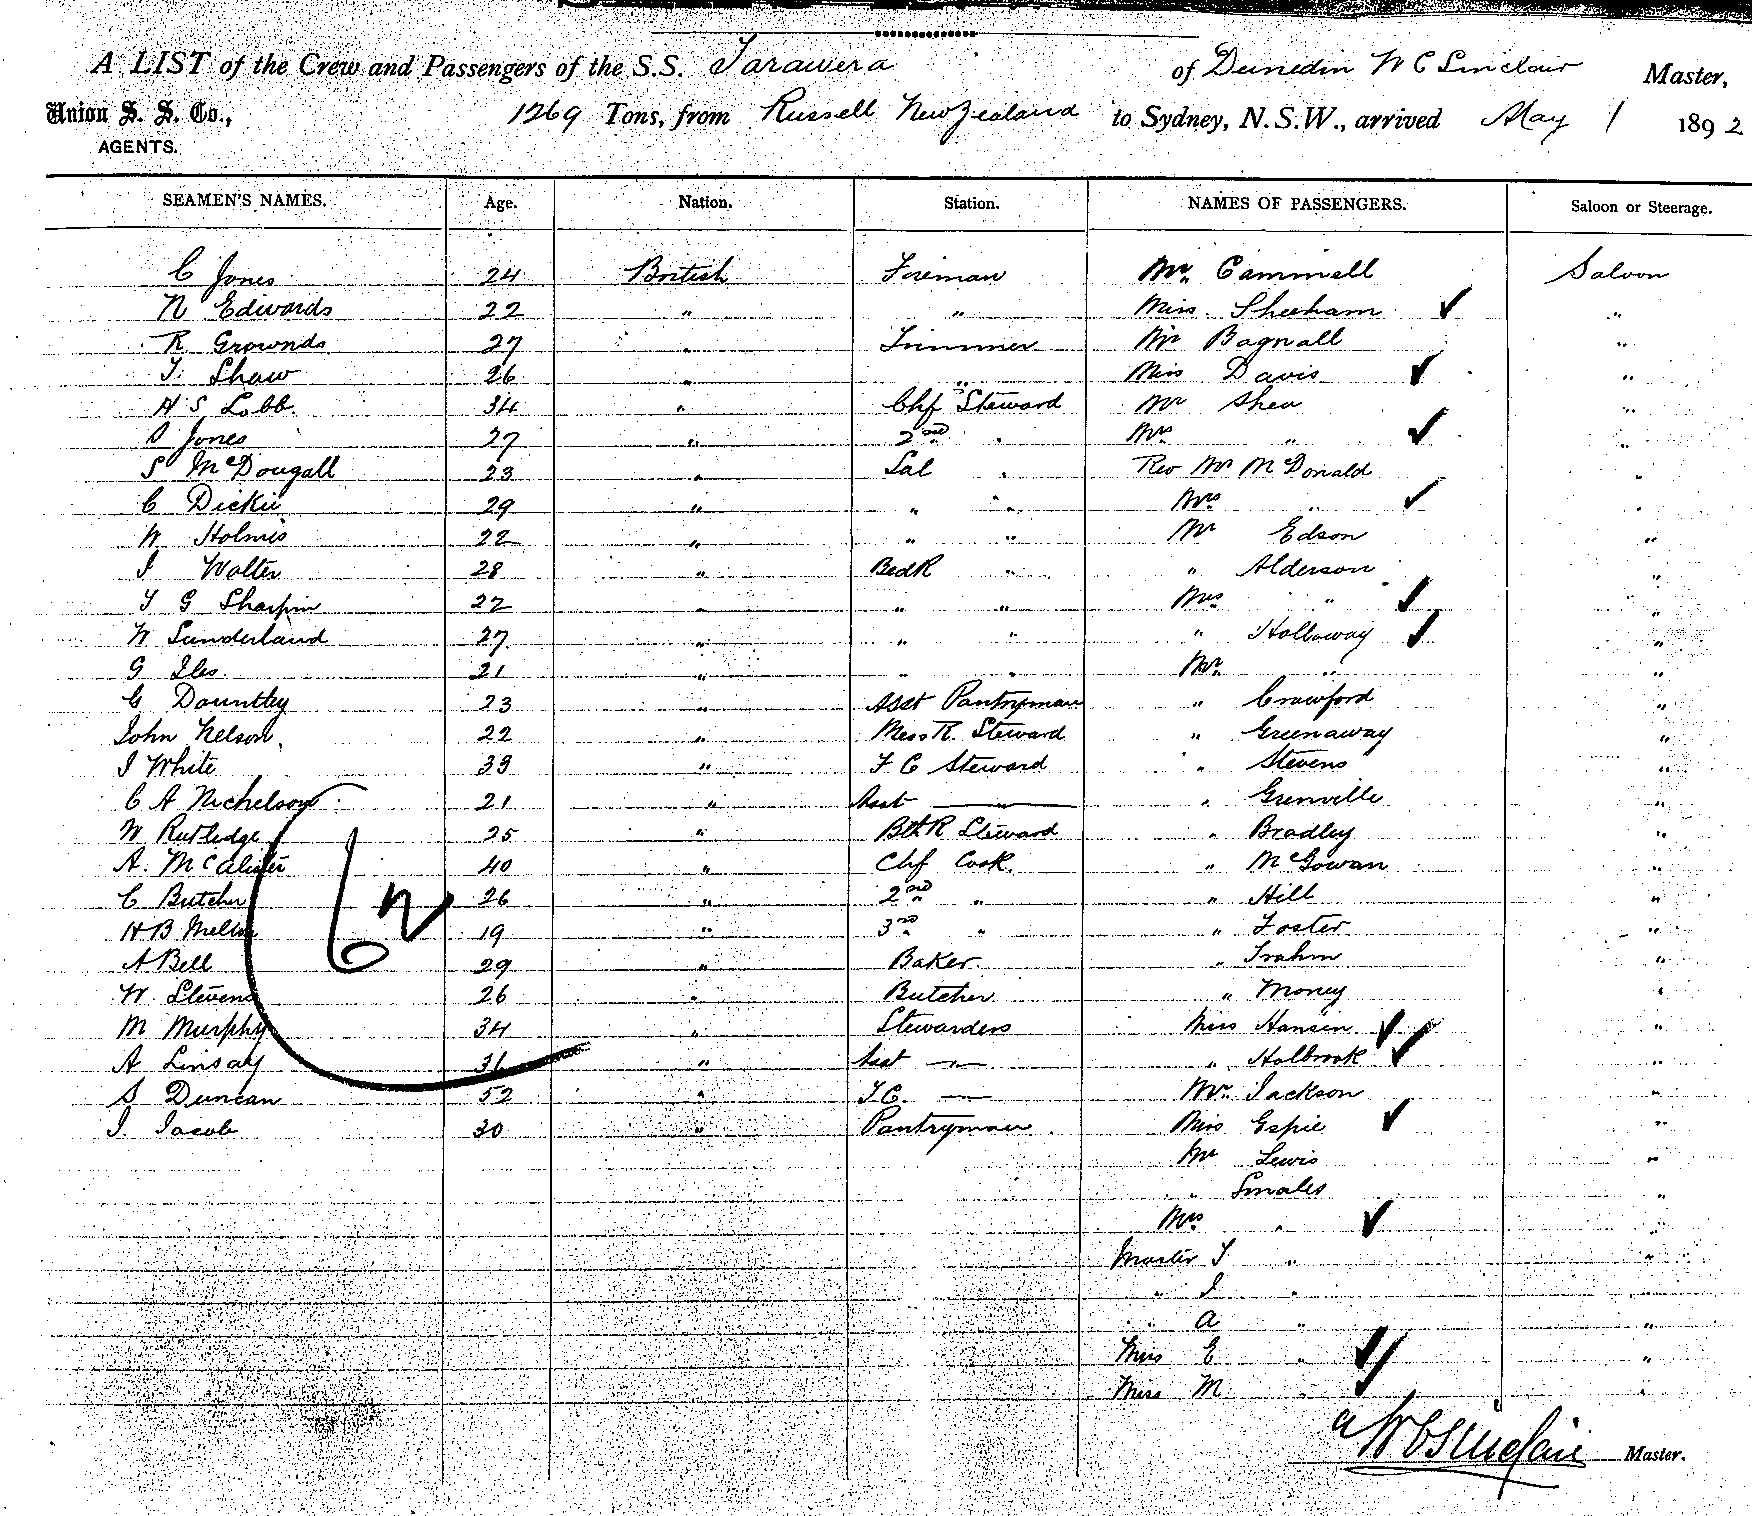 A LIST of the Crew and Passengers of the S.S. Tarawera of Dunedin W C Sinclair Master,
Union S. S. Co., 1269 Tons, from Russell New Zealand to Sydney, N.S.W., arrived May 1 1892
AGENTS.
SEAMEN'S NAMES. Age. Nation. Station. NAMES OF PASSENGERS. Saloon or Steerage.
C Jones 24 British Fireman Mr. Cammell Saloon
N Edwards 22 " " Miss Sheeham ✓ "
R Grownds 27 " Trimmer Mr Bagnall "
T. Shaw 26 " " Miss Davis ✓ "
H S Lobb. 34 " Chf Steward Mr Shea "
S Jones 27 " 2nd " Mrs " ✓ "
S McDougall 23 " Sal " Rev Mr McDonald "
C Dickie 29 " " " Mrs " ✓ "
W Holmes 22 " " " Mr Edson "
J Walter 28 " BedR " " Alderson "
T G Sharpin 22 " " " Mrs " ✓ "
W Sunderland 27 " " " " Holloway ✓ "
G Iles 21 " " " Mr. " "
C Dountley 23 " Asst Pantryman " Crawford "
John Nelson 22 " Mess R. Steward " Greenaway "
J White 33 " F C Steward " Stevens "
C A Nichelson 21 " Asst —"— " Grenville "
W Rutledge 25 " BthR Steward " Bradley "
A. McCalister 40 " Chf Cook. " McGowan "
C Butcher 26 " 2nd " " Hill "
H B 19 " 3rd " " Foster "
A Bell 29 " Baker. " Trahm "
W. Stevens 26 " Butcher " Money "
M Murphy 34 " Stewardess Miss Hansen ✓ "
A Linsay 31 " Asst —"— " Holbrook ✓ "
S Duncan 52 " F.C. —"— Mr. Jackson "
J. Jacob 30 " Pantryman Miss Espie ✓ "
Mr Lewis "
" Smales "
Mrs " ✓ "
Master T " "
" J " "
" A " "
Miss E " ✓ "
Miss M " ✓ "
W C Sinclair Master.